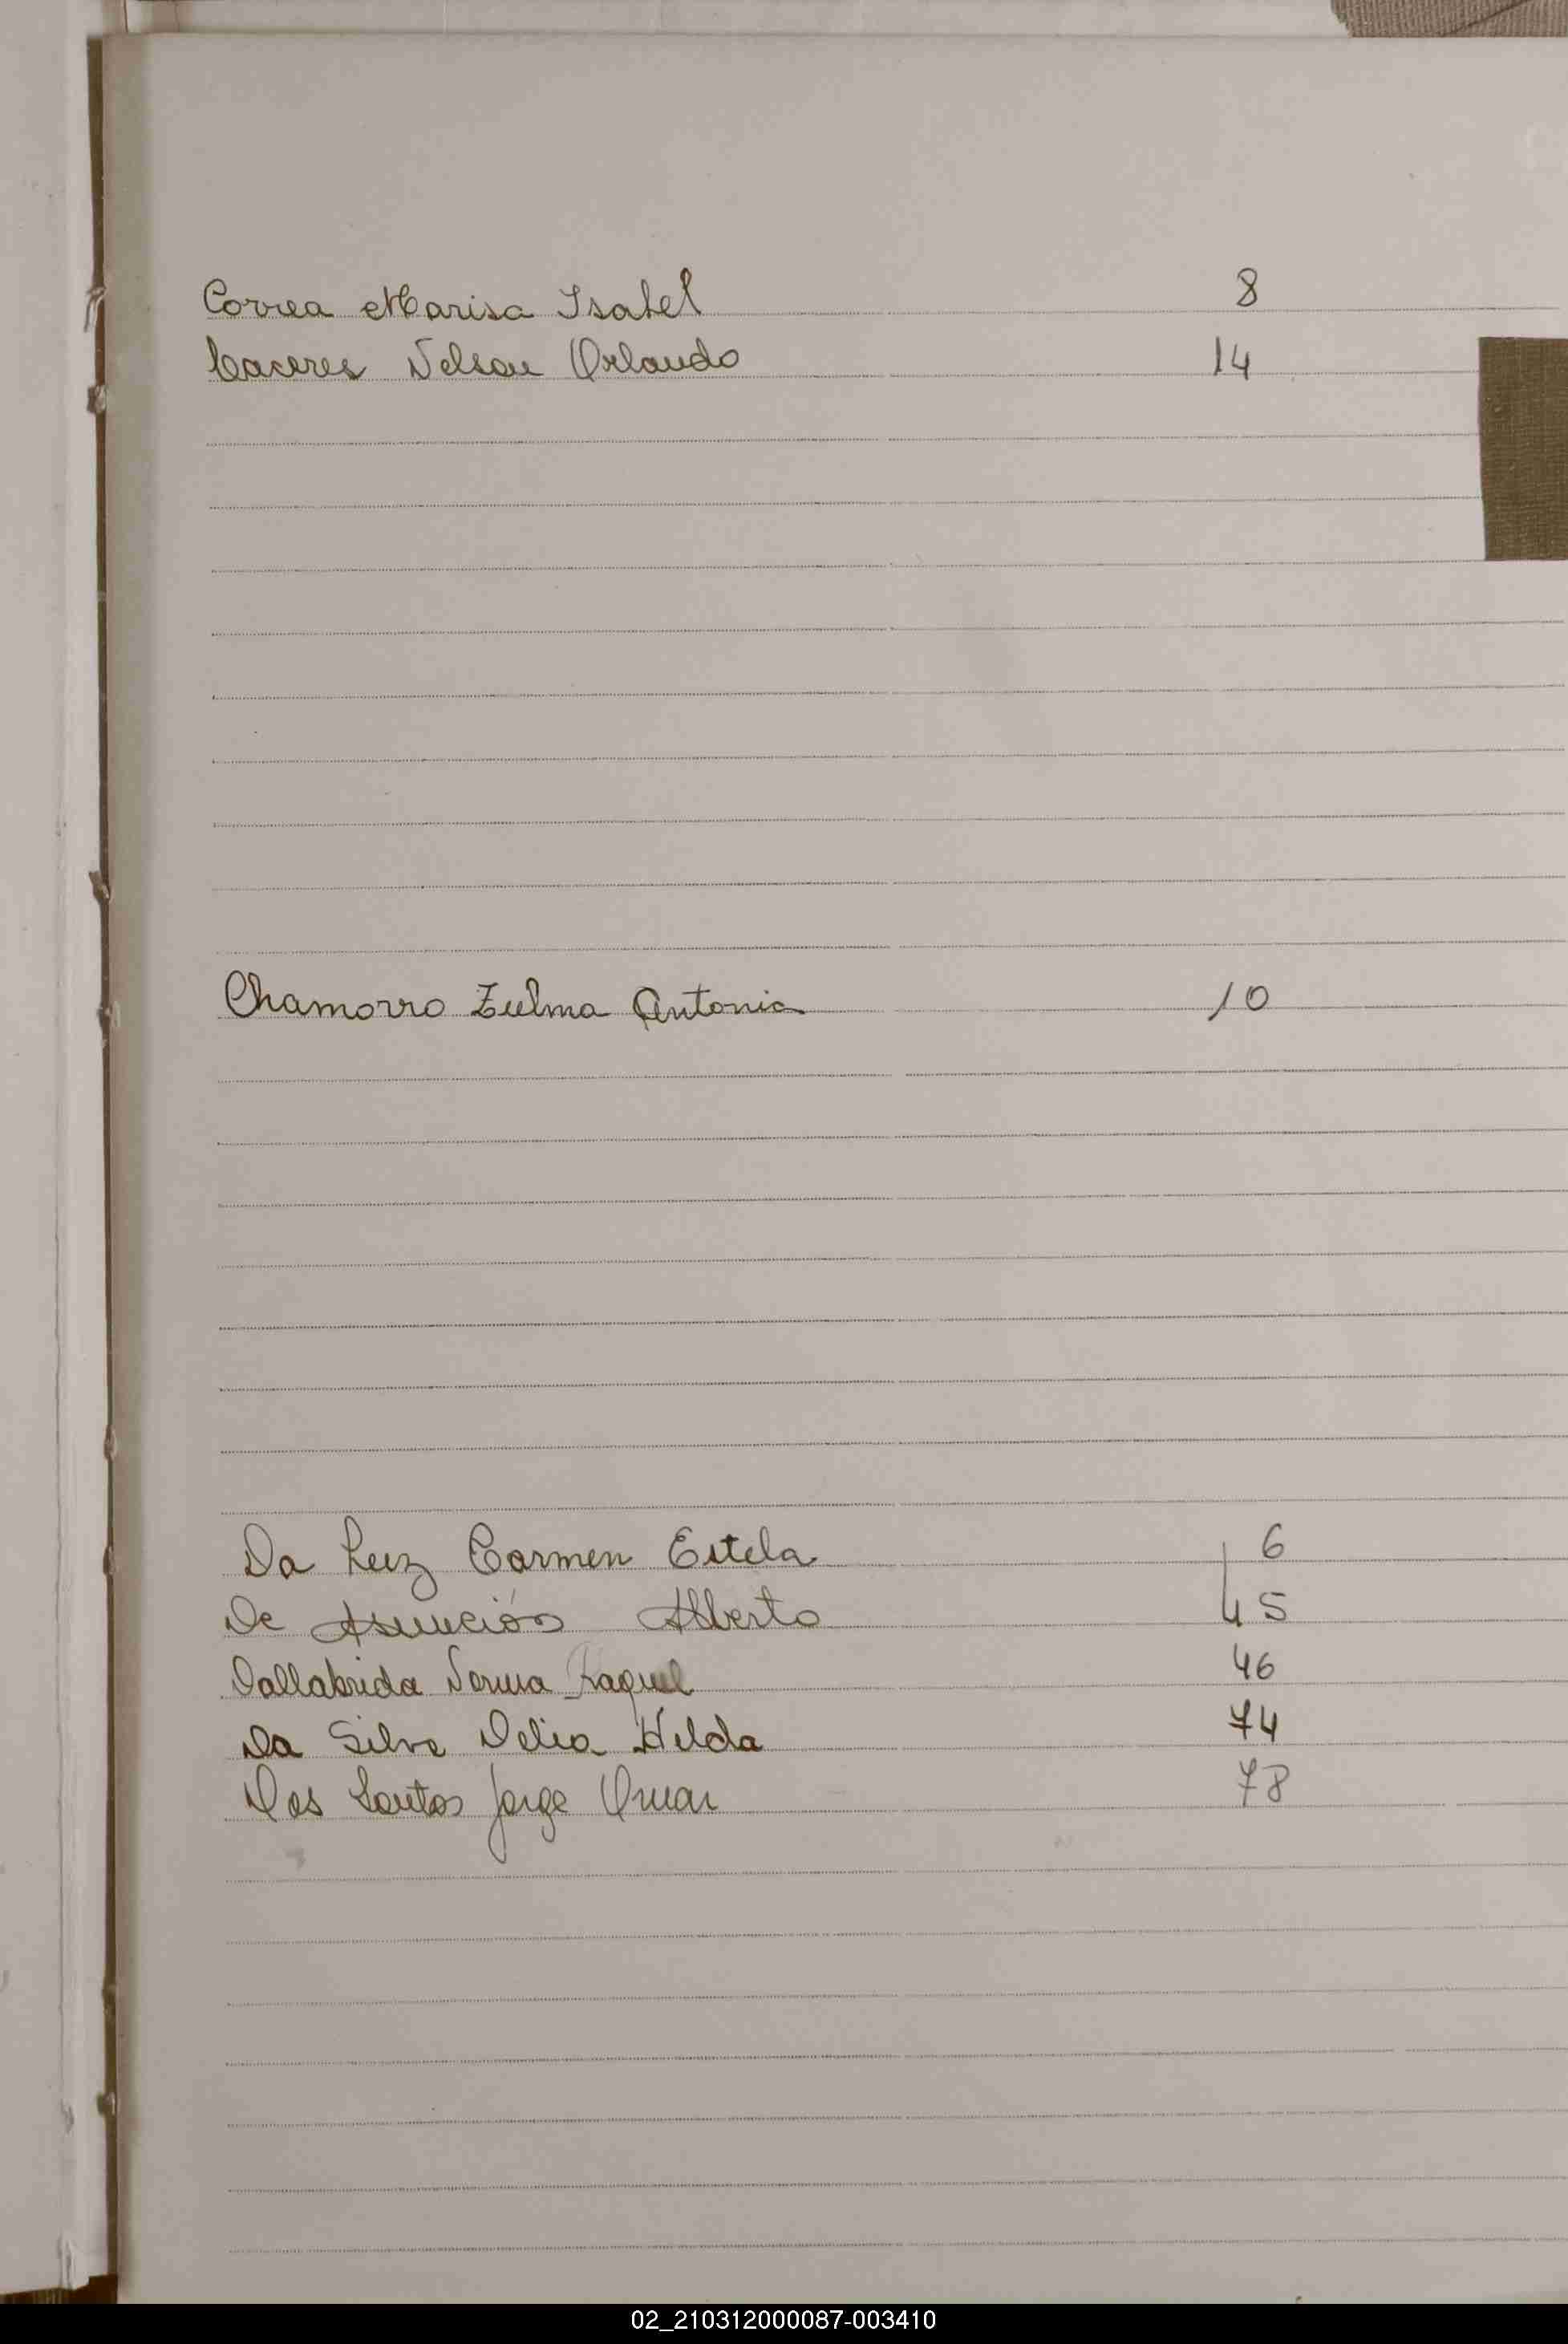 Correa Marisa Isabel 8
Caceres Nelson Orlando 14
Chamorro Zulma Antonia 10
Da Luz Carmen Estela 6
De Asunción Alberto 45
Dallabrida Norma Raquel 46
Da Silva Delia Hilda 74
Dos Santos Jorge Omar 78
02_210312000087-003410